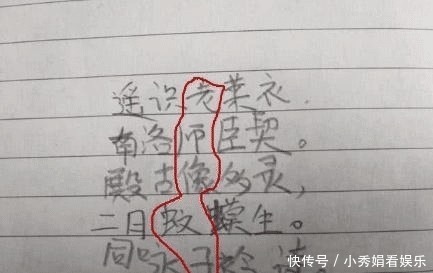 遥识老莱衣.
南洛师臣契。
殿古像多灵,
二月蚁蠓生。
同咏子衿诗
快传号 / 小秀娟看娱乐